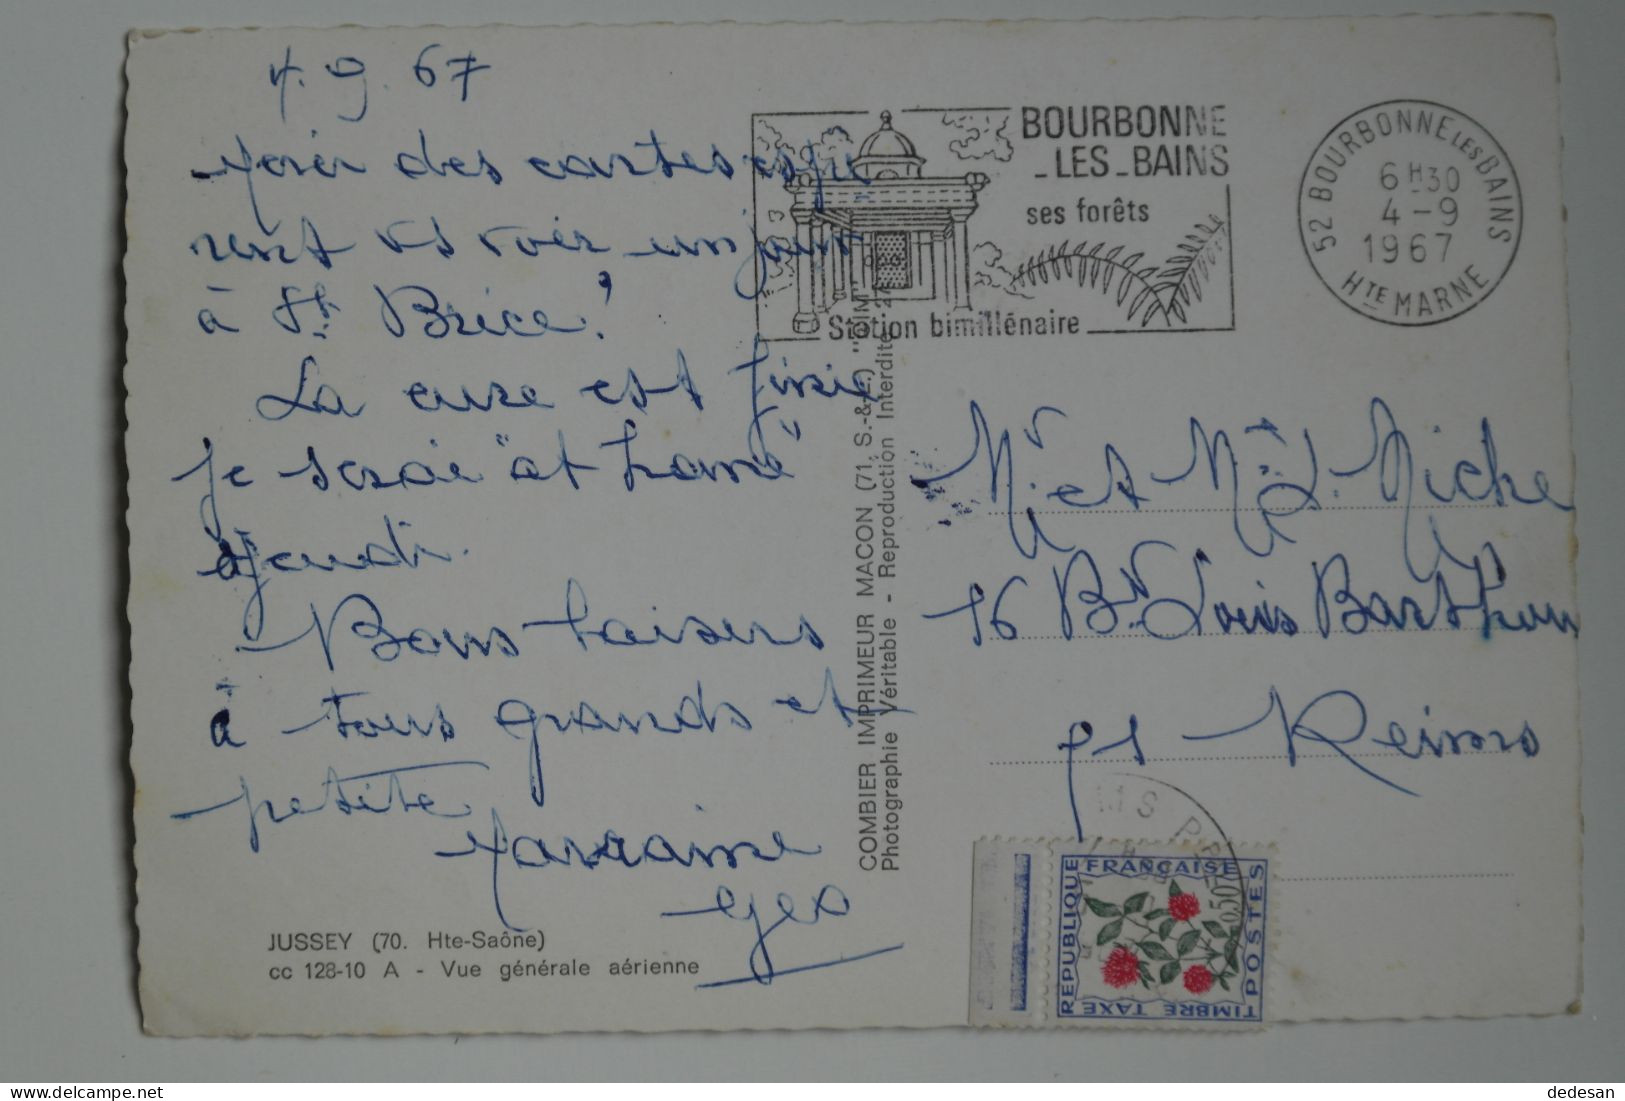 4.9.67
des cartes
vs voir un jour
à St Brice!
La cure est finie
je serai "at home"
jeudi.
Bons baisers
à tous grands et
petite
Marraine
Geo
JUSSEY (70. Hte-Saône)
cc 128-10 A - Vue générale aérienne
COMBIER IMPRIMEUR MACON (71, S.-&-L.) "CIM"
Photographie Véritable - Reproduction Interdite
BOURBONNE
_LES_BAINS
ses forêts
Station bimillénaire
52 BOURBONNE LES BAINS
6H30
4-9
1967
HTE MARNE
Mr et Me J. Miche
16 Bd Louis Barthou
51 Reims
RÉPUBLIQUE
FRANÇAISE
POSTES
TIMBRE TAXE
0,50
dedesan